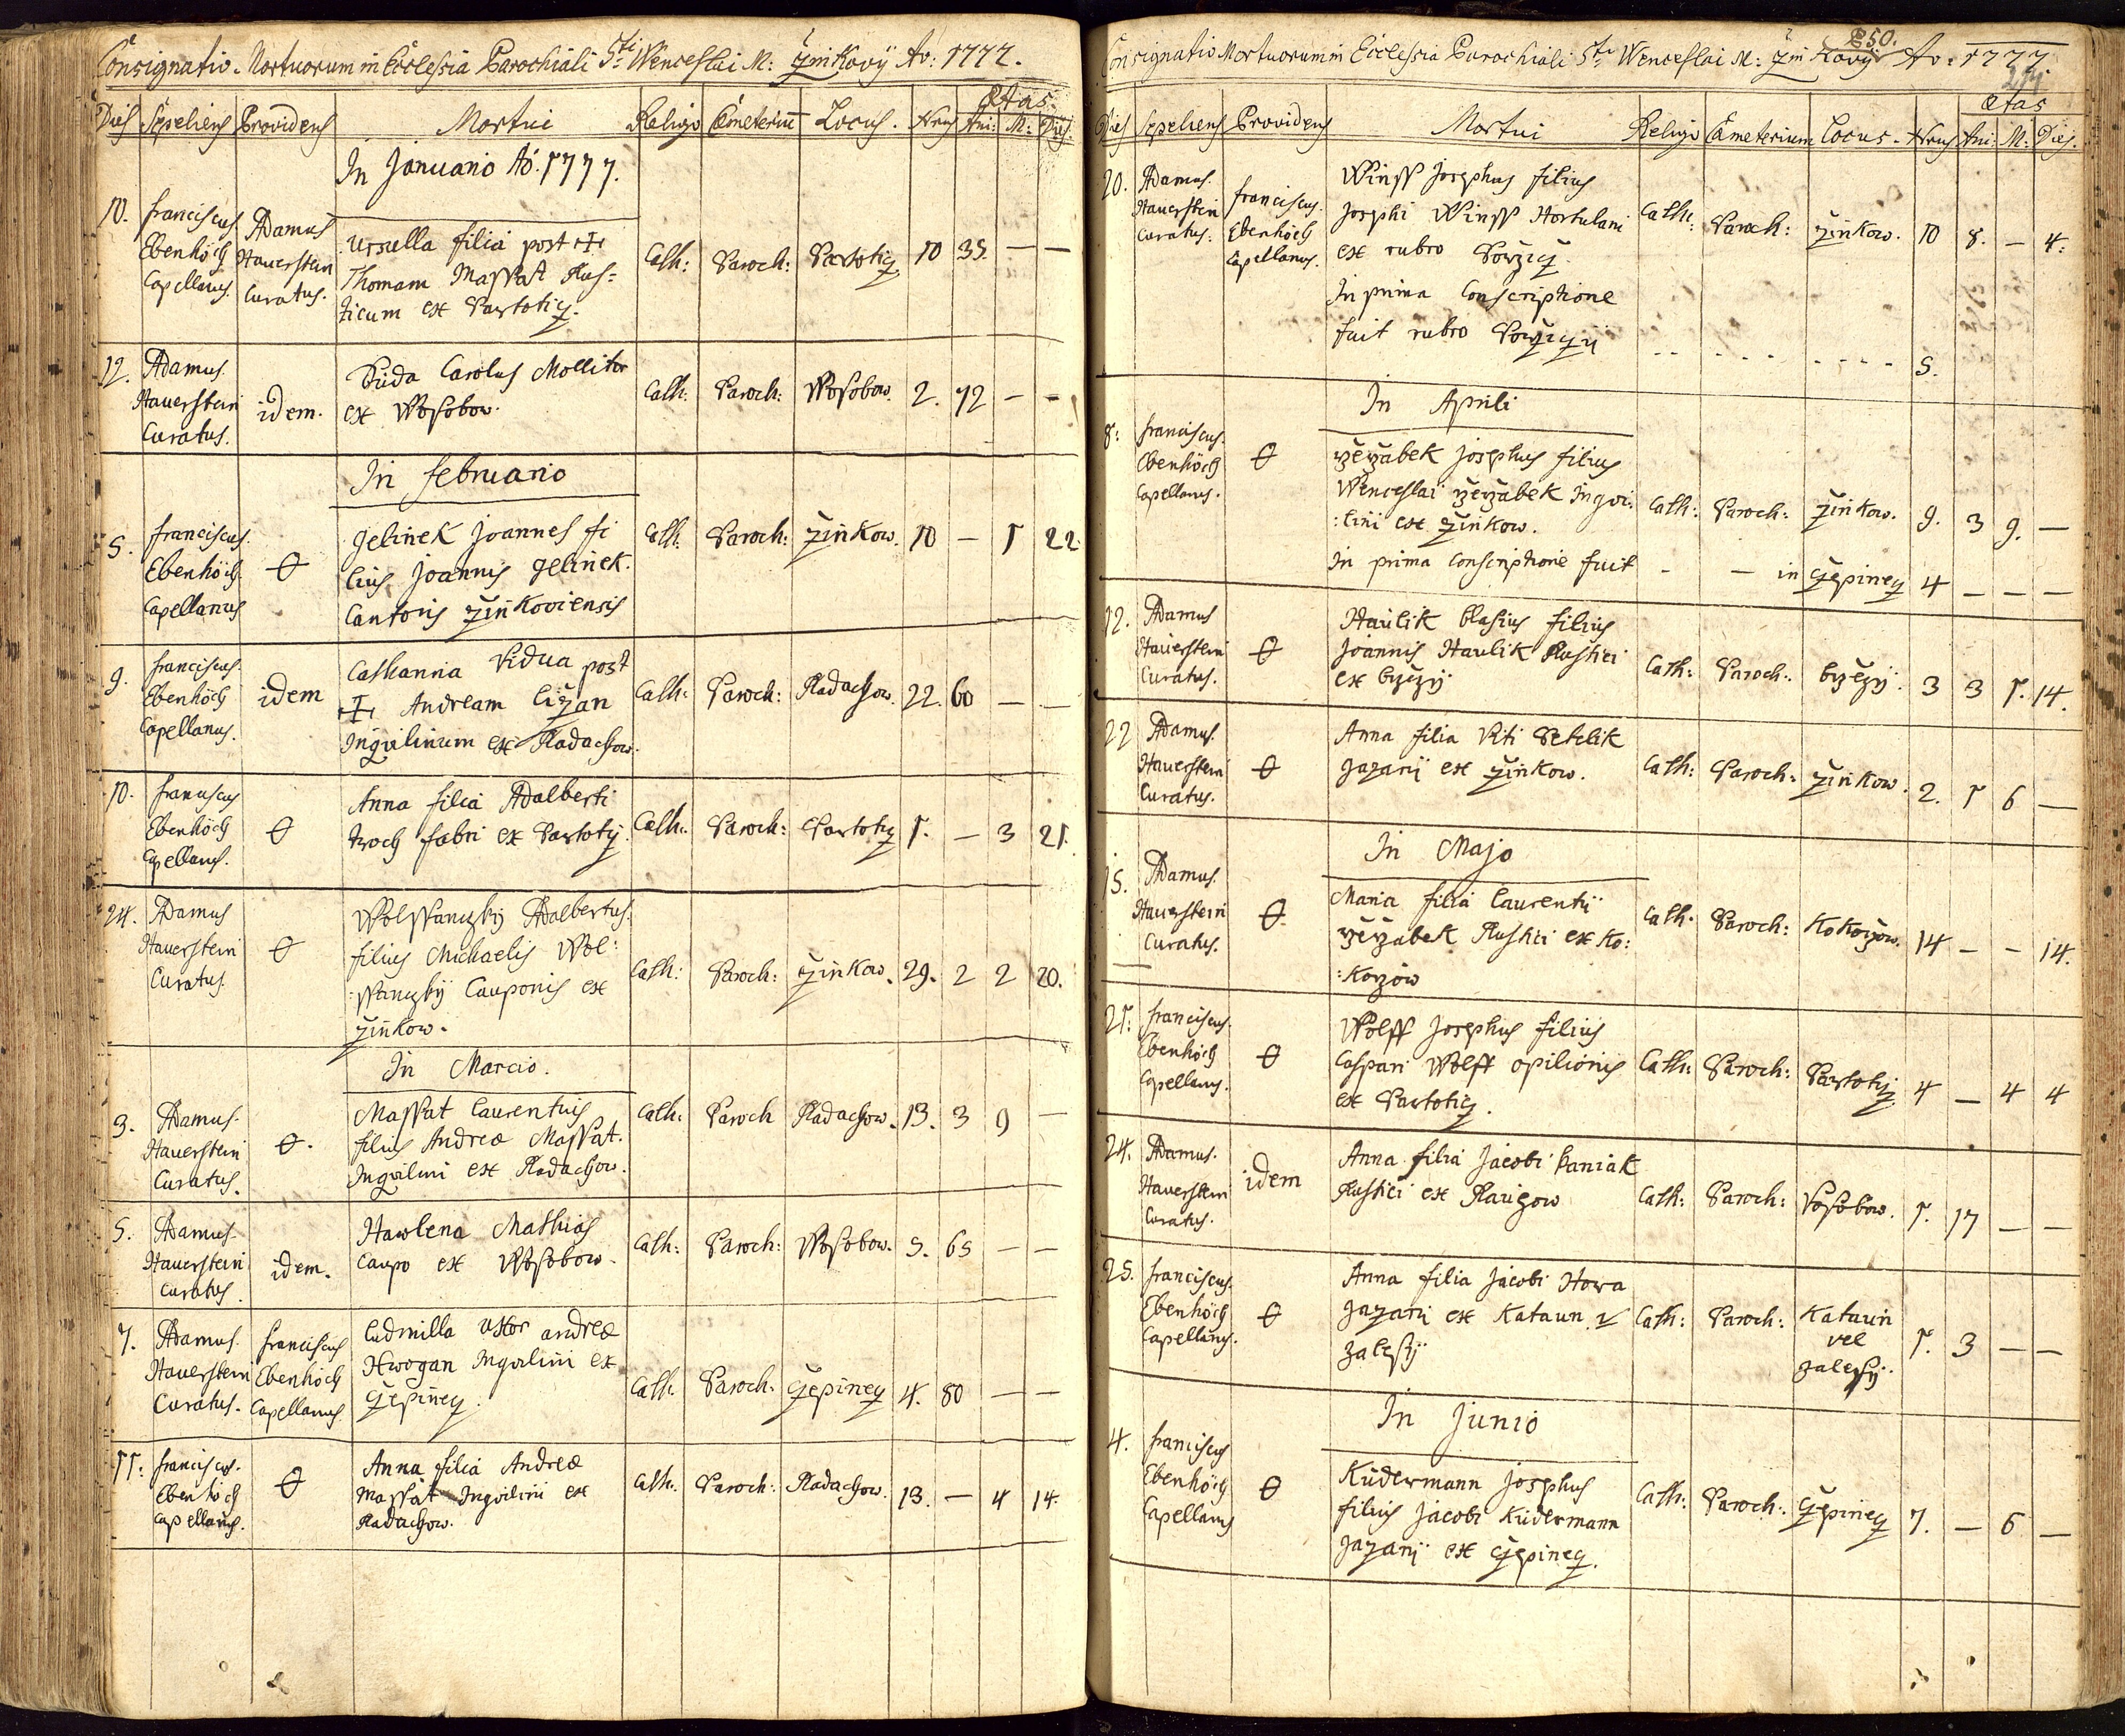 Consignatio Mortuorum in Ecclesia Parochiali Sti Wenceslai M: Žinkovÿ Ao: 1777.
Dies Sepeliens Providens Mortui Religio Cæmeteriū Locus. Nrus Ætas Ani: M: Dies.
In Januario Ao. 1777.
10. Franciscus Ebenhöch Capellanus. Adamus Hauerstein Curatus.
Ursulla filia post
Thomam Massat Rus=
ticum ex
Cath: Paroch: 10 35 — —
12. Adamus Hauerstein Curatus. idem.
Duda Carolus Mollitor
ex Wosobow.
Cath: Paroch: Wosobow. 2. 72 — —
In Februario
5. Franciscus Ebenhöch Capellanus
Gelinek Joannes fi
lius Joannis Gelinek
Cantoris Žinkoviensis
Cath: Paroch: Žinkow. 10 — 1 22
9. Franciscus Ebenhöch Capellanus. idem
Catharina Vidua post
Andream Ližan
Inqvilinum ex Radachow.
Cath: Paroch: Radachow. 22. 60 — —
10. Franciscus Ebenhöch Capellanus.
Anna filia Adalberti
fabri ex
Cath: Paroch: 1. — 3 21.
24. Adamus Hauerstein Curatus.
Adalbertus
filius Michaelis Wol:
Cauponis ex
Žinkow.
Cath: Paroch: Žinkow. 29. 2 2 20.
In Marcio.
3. Adamus Hauerstein Curatus.
Massat Laurentius
filius Andreæ Massat
Inqvilini ex Radachow.
Cath: Paroch Radachow. 13. 3 9 —
5. Adamus Hauerstein Curatus. idem.
Hawlena Mathias
Caupo ex Wosobow.
Cath: Paroch: Wosobow. 5. 65 — —
7. Adamus Hauerstein Curatus. Franciscus Ebenhöch Capellanus
Ludmilla uxor Andreæ
Inqvilini ex
Čepinecz.
Cath. Paroch: Čepinecz 4. 80 — —
11: Franciscus Ebenhöch Capellanus.
Anna filia Andreæ
Massat Inqvilini ex
Radachow.
Cath. Paroch: Radachow. 13. — 4 14.
250.
Consignatio Mortuorum in Ecclesia Parochiali Sti Wenceslai M: Žinkovÿ Ao: 1777
Dies Sepeliens Providens Mortui Religio Cæmeterium Locus. Nrus Ætas Ani: M: Dies.
20. Adamus Hauerstein Curatus. Franciscus Ebenhöch Capellanus.
Winss Josephus filius
Josephi Winss Hortulani
ex rubro Porzicz.
In prima Conscriptione
fuit rubro
Cath: Paroch: Žinkow. 10 8. — 4.
5.
In Aprili
8: Franciscus Ebenhöch Capellanus.
Rzerzabek Josephus filius
Wenceslai Rzerzabek Inqvi:
:lini ex Žinkow.
In prima Conscriptione fuit
Cath: Paroch: Žinkow. 9. 3 9. —
— — in Čepinecz 4 — — —
12. Adamus Hauerstein Curatus.
Haulik Blasius filius
Joannis Haulik Rustici
ex
Cath: Paroch: 3 3 1. 14.
22 Adamus Hauerstein Curatus.
Anna filia Viti Petrlik
ex Žinkow.
Cath: Paroch: Žinkow. 2. 1 6 —
In Majo
15. Adamus Hauerstein Curatus.
Maria filia Laurentii
Rzerzabek Rustici ex Ko:
:korzow
Cath. Paroch: Kokorzow. 14 — — 14.
21: Franciscus Ebenhöch Capellanus.
Wolff Josephus filius
Caspari Wolff opilionis
ex
Cath: Paroch: 4 — 4 4
24. Adamus Hauerstein Curatus. idem
Anna filia Jacobi Kaniak
Rustici ex
Cath: Paroch: Vosobow. 1. 17 — —
25. Franciscus Ebenhöch Capellanus.
Anna filia Jacobi Howa
ex Kataun v
Zalesÿ
Cath: Paroch: Kataun vel Zalesÿ. 1. 3 — —
In Junio
4. Franciscus Ebenhöch Capellanus
Küdermann Josephus
filius Jacobi Küdermann
ex Čepinecz.
Cath: Paroch: Čepinecz 7. — 6 —